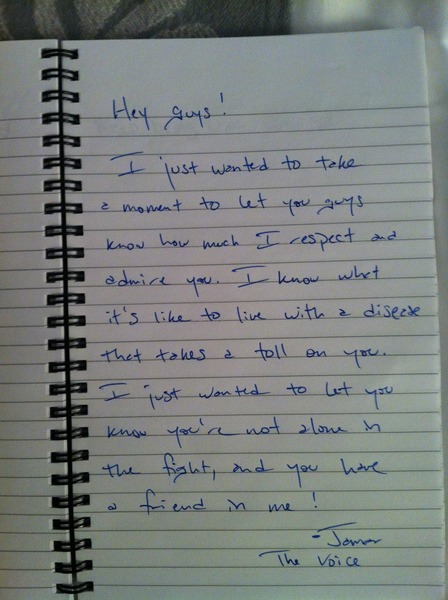 Hey guys!
I just wanted to take
a moment to let you guys
know how much I respect and
admire you. I know what
it's like to live with a disease
that takes a toll on you.
I just wanted to let you
know you're not alone in
the fight, and you have
a friend in me!
-Jamar
The Voice